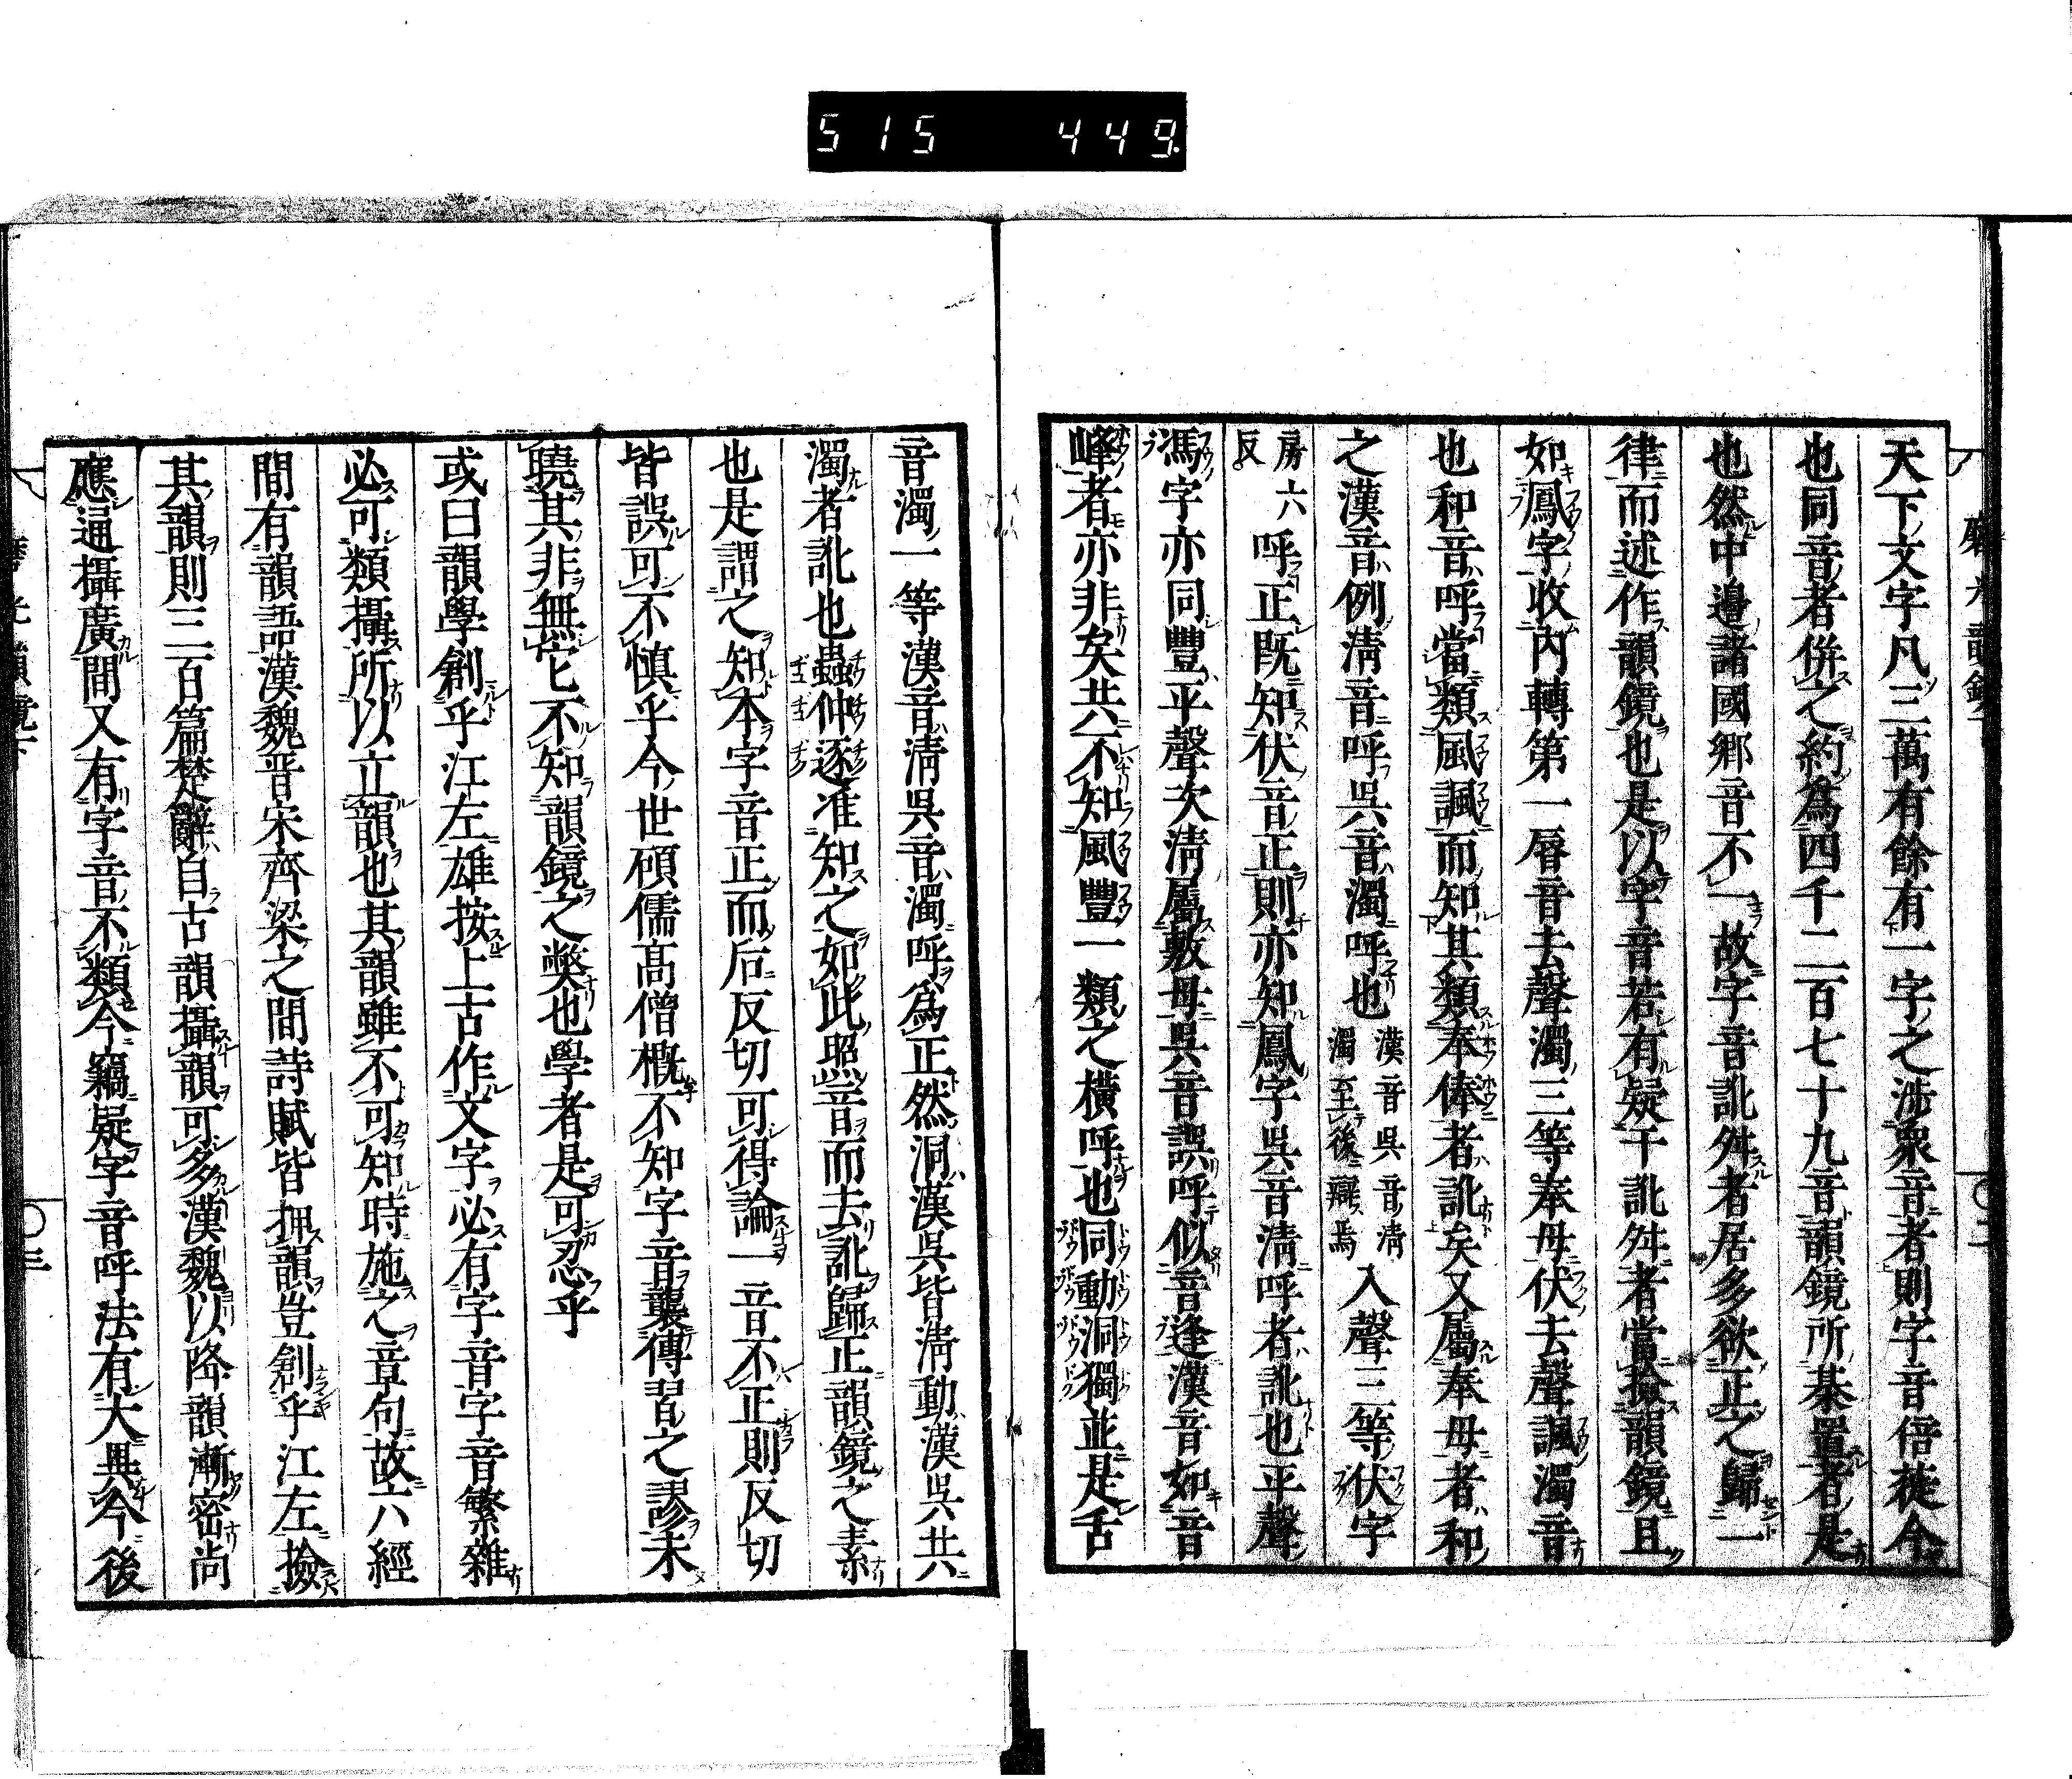 515 449.
天下文字凡三萬有餘有一字之涉衆音者則字音倍蓰今
也同音者併之約爲四千二百七十九音韻鏡所綦置者是
也然中邊諸國鄉音不一故字音訛舛者居多欲正之歸一
律而述作韻鏡也是以字音若有疑于訛舛者當撿韻鏡且
如鳳字收內轉第一唇音去聲濁三等奉母伏去聲諷濁音
也和音呼當類風諷而知其類奉俸者訛矣又屬奉母者和
之漢音例淸音呼吳音濁呼也漢音吳音淸濁至後辯焉入聲三等伏字
房六反呼正既知伏音正則亦知鳳字吳音淸呼者訛也平聲
馮字亦同豐平聲次淸屬敷母吳音誤呼似音逢漢音如音
峰者亦非矣共不知風豐一類之橫呼也同動洞獨並是舌
音濁一等漢音淸吳音濁呼爲正然洞漢吳皆淸動漢吳共
濁者訛也蟲仲逐准知之如此照音而去訛歸正韻鏡之素
也是謂之知本字音正而后反切可得論一音不正則反切
皆誤可不慎乎今世碩儒高僧概不知字音襲傳習之謬未
曉其非無它不知韻鏡之弊也學者是可忍乎
或曰韻學創乎江左雄按上古作文字必有字音字音繁雜
必可類攝所以立韻也其韻雖不可知時施之章句故六經
間有韻語漢魏晋宋齊梁之間詩賦皆押韻豈創乎江左撿
其韻則三百篇楚辭自古韻攝韻可多漢魏以降韻漸密尚
應通攝廣間又有字音不類今竊疑字音呼法有大異今後